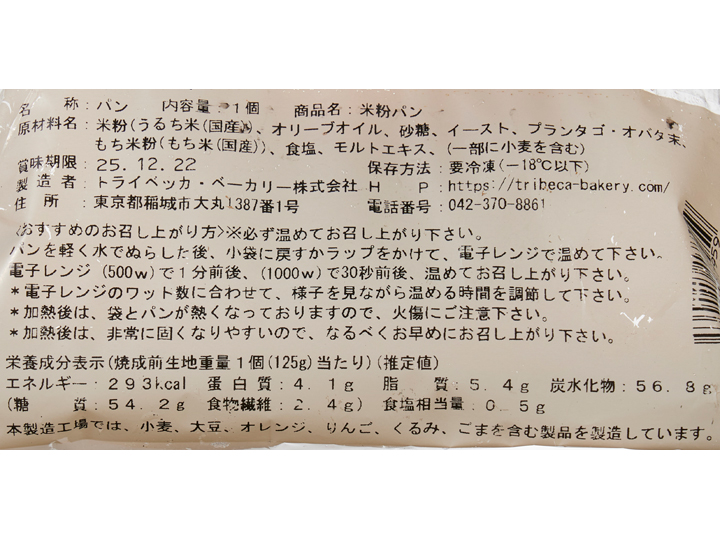 名　称：パン　内容量：1個　商品名：米粉パン
原材料名：米粉(うるち米(国産))、オリーブオイル、砂糖、イースト、プランタゴ・オバタ末、
もち米粉(もち米(国産))、食塩、モルトエキス、(一部に小麦を含む)
賞味期限：25.12.22　保存方法：要冷凍(－18℃以下)
製造者：トライベッカ・ベーカリー株式会社　H　P：https://tribeca-bakery.com/
住　所：東京都稲城市大丸1387番1号　電話番号：042-370-8861
<おすすめのお召し上がり方>※必ず温めてお召し上がり下さい。
パンを軽く水でぬらした後、小袋に戻すかラップをかけて、電子レンジで温めて下さい。
電子レンジ(500w)で1分前後、(1000w)で30秒前後、温めてお召し上がり下さい。
*電子レンジのワット数に合わせて、様子を見ながら温める時間を調節して下さい。
*加熱後は、袋とパンが熱くなっておりますので、火傷にご注意下さい。
*加熱後は、非常に固くなりやすいので、なるべくお早めにお召し上がり下さい。
栄養成分表示(焼成前生地重量1個(125g)当たり)(推定値)
エネルギー：293kcal　蛋白質：4.1g　脂　質：5.4g　炭水化物：56.8g
(糖　質：54.2g　食物繊維：2.4g)　食塩相当量：0.5g
本製造工場では、小麦、大豆、オレンジ、りんご、くるみ、ごまを含む製品を製造しています。